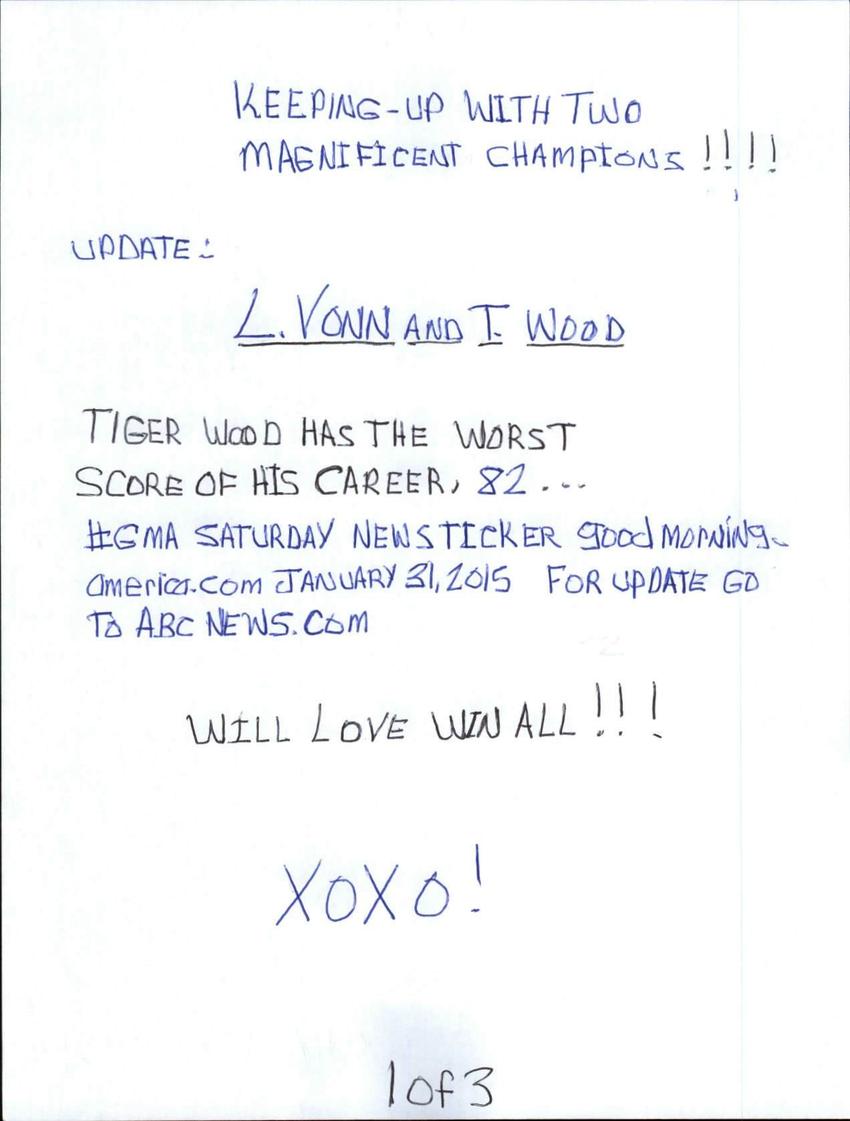 KEEPING-UP WITH TWO
MAGNIFICENT CHAMPIONS !!!!
UPDATE:
L. VONN AND T. WOOD
TIGER WOOD HAS THE WORST
SCORE OF HIS CAREER, 82 ...
#GMA SATURDAY NEWSTICKER good morning-
america.com JANUARY 31, 2015 FOR UPDATE GO
TO ABC NEWS.COM
WILL LOVE WIN ALL !!!
XOXO!
1 of 3